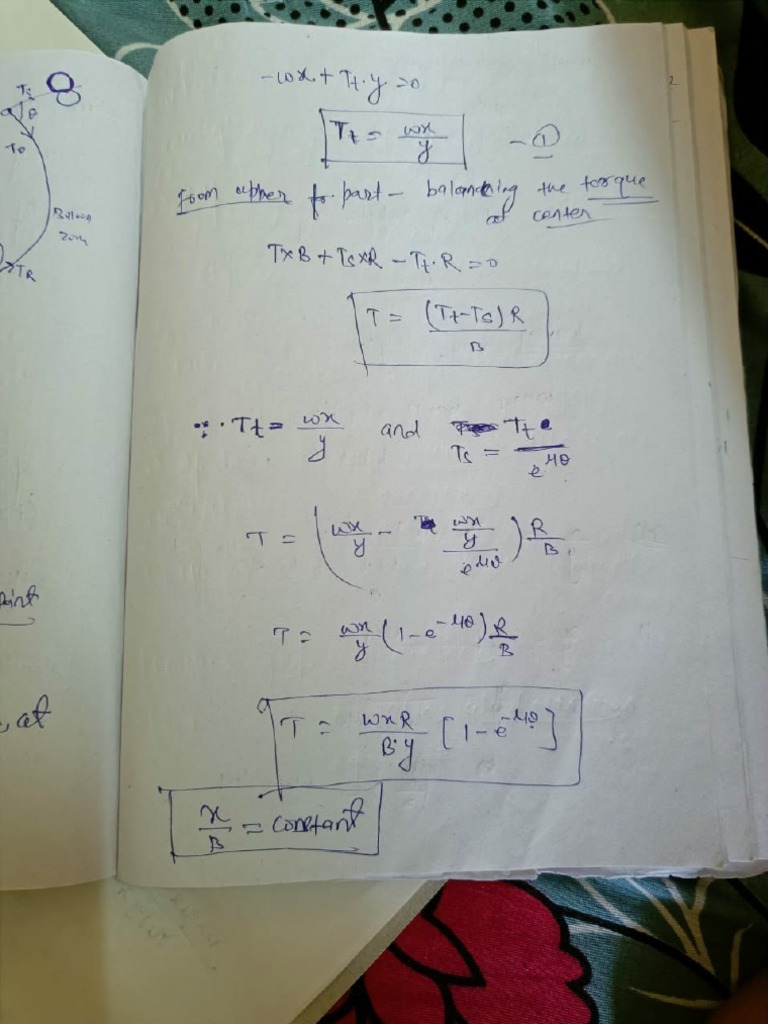 Ts
θ
To
Baloon
Zone
TR
point
, at
2
-wx + Tt.y = 0
Tt = wx/y - ①
from upper part - balancing the torque
at center
T×B + Ts×R - Tt.R = 0
T = (Tt-Ts)R/B
∵ Tt = wx/y and Ts = Tt/e^μθ
T = (wx/y - wx/y/e^μθ) R/B
T = wx/y (1-e^-μθ) R/B
T = wxR/B.y [1-e^-μθ]
x/B = constant